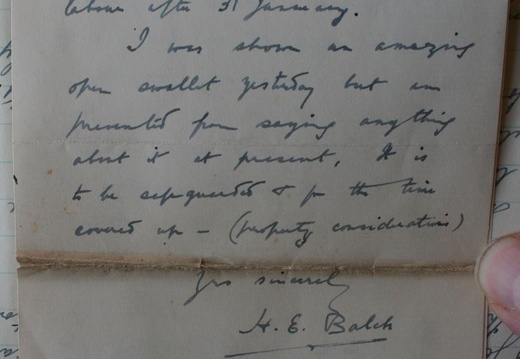 labour after 31 January.
I was shown an amazing
open swallet yesterday but am
prevented from saying anything
about it at present. It is
to be safeguarded & for the time
covered up – (property considerations)
Yrs sincerely
H. E. Balch